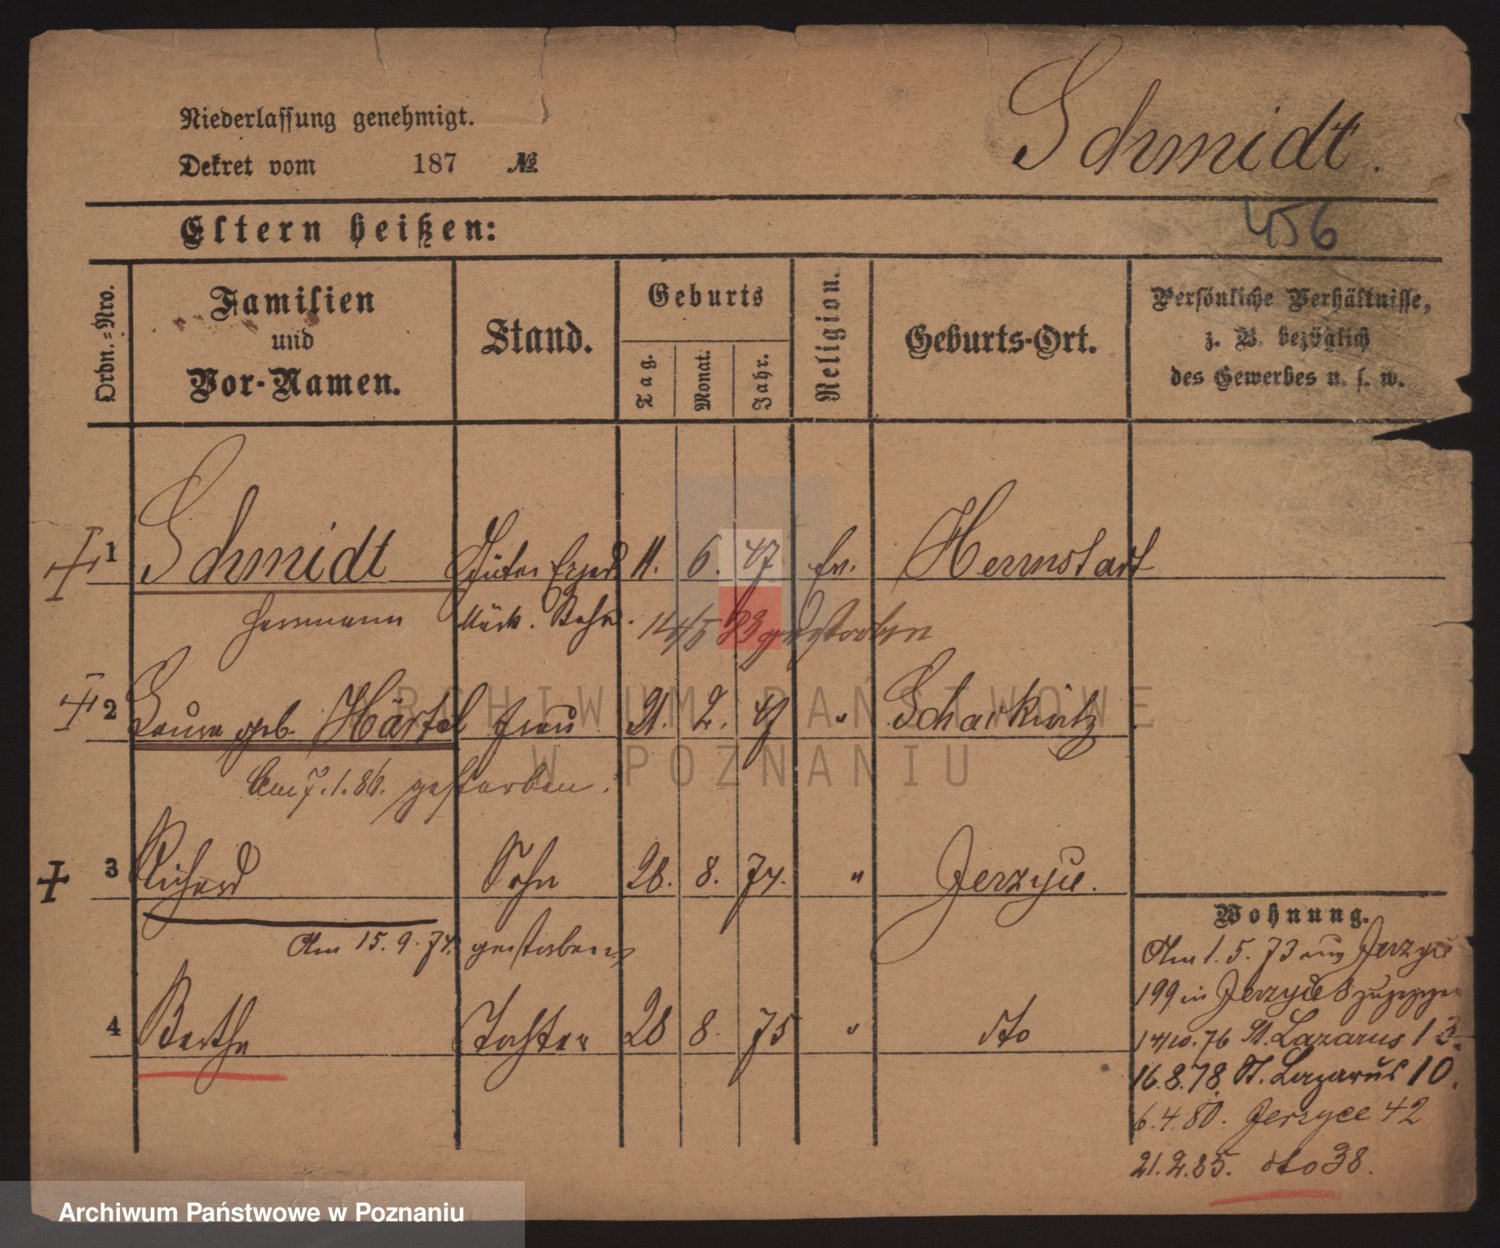 Niederlassung genehmigt.
Schmidt.
Dekret vom 187 №
Eltern heißen:
456
Ordn.-Nro.
Familien und Vor-Namen.
Stand.
Geburts
Tag.
Monat.
Jahr.
Religion.
Geburts-Ort.
Persönliche Verhältnisse,
z. B. bezüglich
des Gewerbes u. s. w.
1 Schmidt Güter Exped 11. 6. 47 Ev. Herrnstadt
Herrmann Märk. Bahn. 14/5 83 gestorben
2 Laura geb. Härtel Frau 21. 2. 47 " Scharkwitz
Am 7. 1. 86. gestorben.
3 Richard Sohn 28. 8. 74. " Jerzyce.
Am 15. 9. 74. gestorben
4 Bertha Tochter 28 8. 75 " dto
Wohnung.
Am 1. 5. 73 aus Jerzyce
199 in Jerzyce 8 zugezogen
14/10. 76 St. Lazarus 13.
16. 8. 78. St. Lazarus 10.
6. 4. 80. Jerzyce 42
21. 2. 85. dto 38.
ARCHIWUM PAŃSTWOWE
W POZNANIU
Archiwum Państwowe w Poznaniu